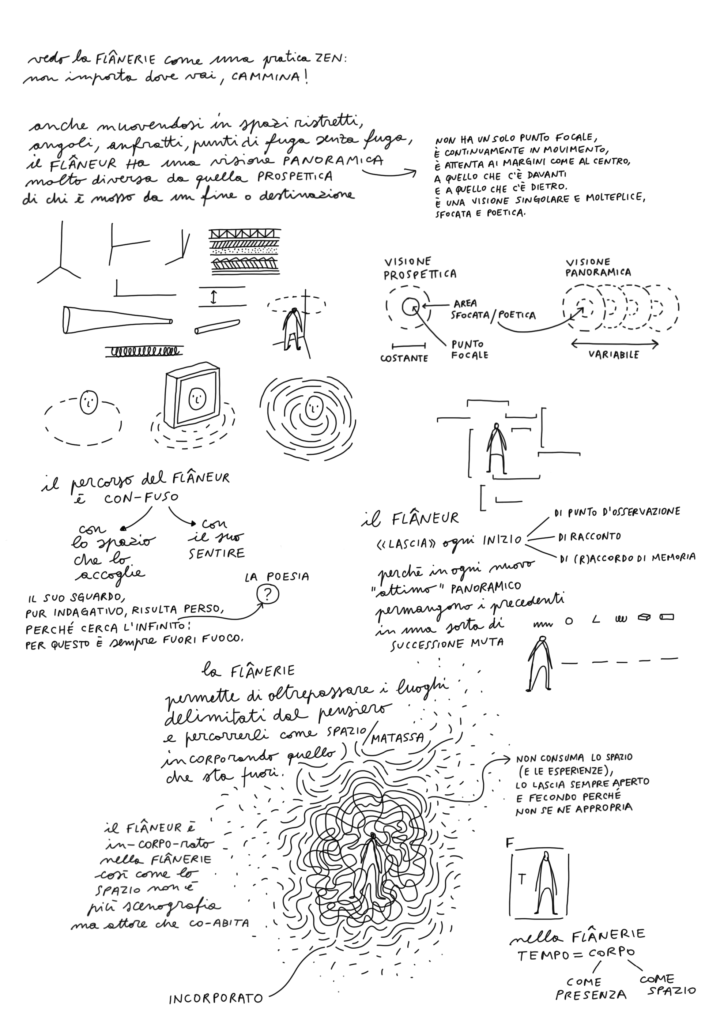 vedo la FLÂNERIE come una pratica ZEN:
non importa dove vai, CAMMINA!
anche muovendosi in spazi ristretti,
angoli, anfratti, punti di fuga senza fuga,
il FLÂNEUR HA una visione PANORAMICA
molto diversa da quella PROSPETTICA
di chi è mosso da un fine o destinazione
NON HA UN SOLO PUNTO FOCALE,
È CONTINUAMENTE IN MOVIMENTO,
È ATTENTA AI MARGINI COME AL CENTRO,
A QUELLO CHE C'È DAVANTI
E A QUELLO CHE C'È DIETRO.
È UNA VISIONE SINGOLARE E MOLTEPLICE,
SFOCATA E POETICA.
VISIONE
PROSPETTICA
AREA
SFOCATA/POETICA
PUNTO
FOCALE
COSTANTE
VISIONE
PANORAMICA
VARIABILE
il percorso del FLÂNEUR
è CON-FUSO
con
lo spazio
che lo
accoglie
con
il suo
SENTIRE
IL SUO SGUARDO,
PUR INDAGATIVO, RISULTA PERSO,
PERCHÉ CERCA L'INFINITO:
PER QUESTO È sempre FUORI FUOCO.
LA POESIA
?
il FLÂNEUR
«LASCIA» ogni INIZIO
DI PUNTO D'OSSERVAZIONE
DI RACCONTO
DI (R)ACCORDO DI MEMORIA
perché in ogni nuovo
"attimo" PANORAMICO
permangono i precedenti
in una sorta di
SUCCESSIONE MUTA
la FLÂNERIE
permette di oltrepassare i luoghi
delimitati dal pensiero
e percorrerli come SPAZIO/MATASSA
inCORPORando quello
che sta fuori.
NON CONSUMA LO SPAZIO
(E LE ESPERIENZE),
LO LASCIA SEMPRE APERTO
E FECONDO PERCHÉ
NON SE NE APPROPRIA
il FLÂNEUR è
in-CORPO-rato
nella FLÂNERIE
così come lo
SPAZIO non è
più scenografia
ma attore che CO-ABITA
INCORPORATO
F
T
nella FLÂNERIE
TEMPO = CORPO
COME
PRESENZA
COME
SPAZIO